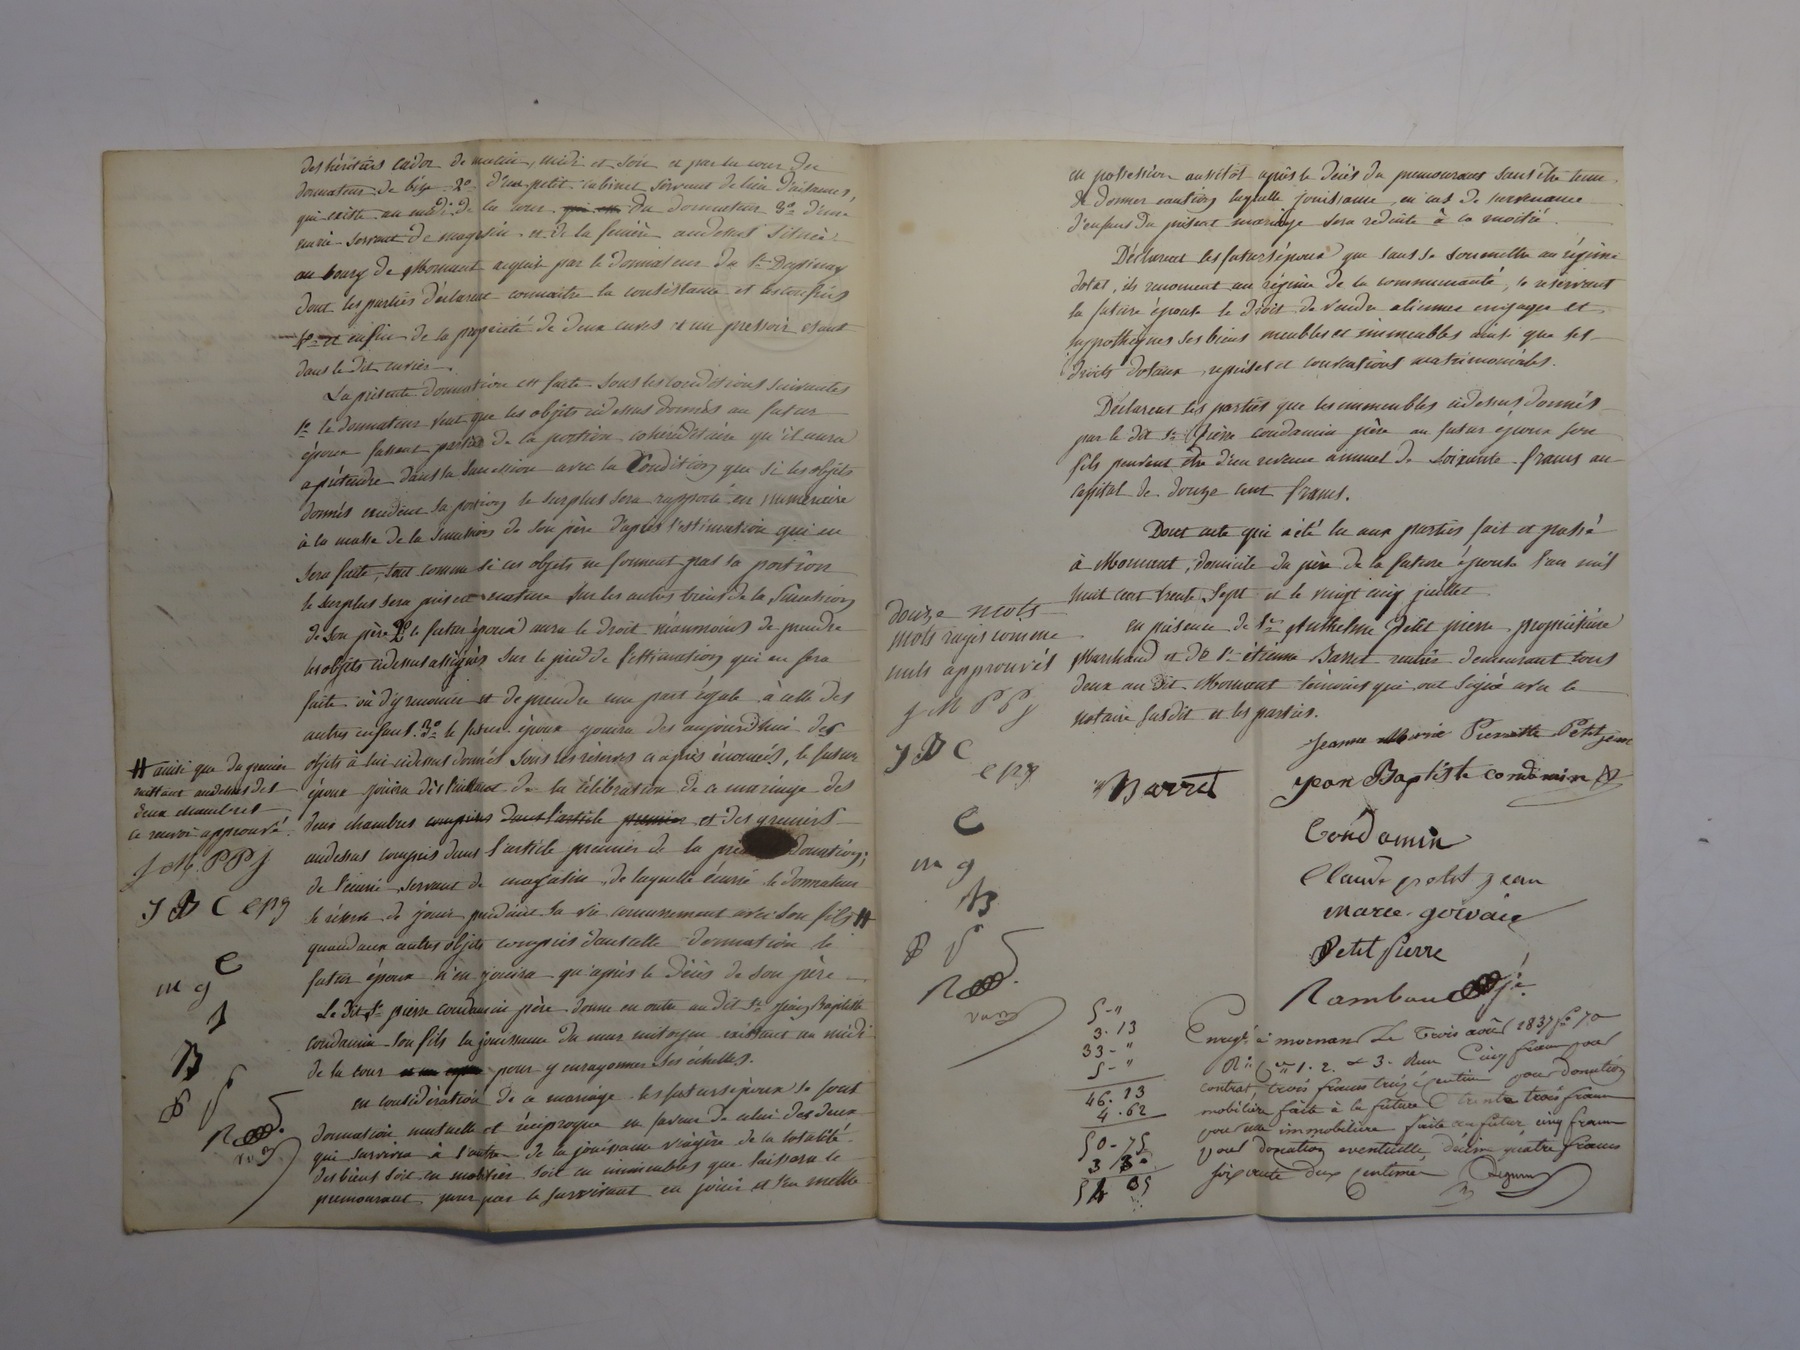 des héritiers Cador de matin, midi et soir et par la cour du
donateur de bise. 2o d'un petit cabinet servant de lieu d'aisances,
qui existe au midi de la cour du donateur 3o d'une
écurie servant de magasin et de la fenière audessus située
au bourg de Mornant acquis par le donateur du Sr
dont les parties déclarent connaître la consistance et les confins
4o et enfin de la propriété de deux cuves et un pressoir étant
dans le dit cuvier.
La présente donnation est faite sous les conditions suivantes
1o le donnateur veut que les objets cidessus donnés au futur
époux fassent partie de la portion cohéréditaire qu'il aura
a prétendre dans sa succession avec la Condition que si les objets
donnés excèdent sa portion le surplus sera rapporté en numéraire
à la masse de la succession de son père d'après l'estimation qui en
sera faite, tout comme si ces objets ne forment pas sa portion
le surplus sera pris en nature sur les autres biens de la succession
de son père 2o le futur époux aura le droit néanmoins de prendre
les objets cidessus assignés sur le pied de l'estimation qui en sera
faite où d'y renoncer et de prendre une part égale à celle des
autres enfans. 3o le futur époux jouira des aujourd'hui des
objets à lui cidessus donnés sous les réserves ci après énoncées, le futur
époux jouira dès l'instant de la célébration de ce mariage des
deux chambres comprises dans l'article premier et des greniers
audessus compris dans l'article premier de la donnation;
de l'écurie servant de magasin, de laquelle écurie le donnateur
se réserve de jouir pendant sa vie concurremment avec son fils #
quand aux autres objets compris dans cette donnation le
futur époux n'en jouira qu'après le décès de son père
Le dit Sr pierre condamin père donne en outre au dit Sr jean Baptiste
condamin son fils la jouissance du mur mitoyen existant au midi
de la cour pour y enrayonner ses échelles.
en considération de ce mariage les futurs époux se font
donnation mutuelle et réciproque en faveur de celui des deux
qui survivra à l'autre de la jouissance viagère de la totalité
des biens soit en mobilier soit en immeubles que laissera le
premourant, pour par le survivant en jouir et s'en mettre
# ainsi que du grenier
existant audessus des
deux chambres
ce renvoi approuvé.
J M. P P J
J B C e p g
C
m g
B
P
R
en possession aussitôt après le décès du premourant sans être tenu
de donner caution laquelle jouissance, en cas de survenance
d'enfans du présent mariage sera réduite à la moitié.
Déclarent les futurs époux que sans se soumettre au régime
dotal, ils renoncent au régime de la communauté, se réservant
la future épouse le droit de vendre aliener engager et
hypothéquer ses biens meubles et immeubles ainsi que ses
droits dotaux, reprises et conventions matrimoniales.
Déclarent les parties que les immeubles cidessus donnés
par le dit Sr Pierre condamin père au futur époux son
fils peuvent être d'un revenu annuel de soixante francs au
capital de douze cent francs.
Dont acte qui a été lu aux parties fait et passé
à Mornant, domicile du père de la future épouse l'an mil
huit cent trente sept et le vingt cinq juillet
en présence de Sr Anthelme Petit pierre propriétaire
Marchand et de Sr étienne Barret rentier demeurant tous
deux au dit Mornant témoins qui ont signé avec le
notaire susdit et les parties.
douze mots
mots rayés comme
nuls approuvés
J M P P J
J B C
e p g
C
m g
B
P
R
Jeanne Marie Pierrette Petitjean
Barret
Jean Baptiste condamin
Condamin
Claude petit jean
marie gervais
Petit Pierre
Rambaud
5 - "
3. 13
33 - "
5 - "
46. 13
4. 62
50 - 75
54 05
Enregé à mornant Le Trois août 1837 fo 70
Ro Cases 1. 2. et 3. Reçu Cinq francs pour
contrat, trois francs treize centimes pour donation
mobilière faite à la future trente trois francs
pour celle immobilière faite au futur cinq francs
pour donation eventuelle, décime quatre francs
soixante deux Centimes